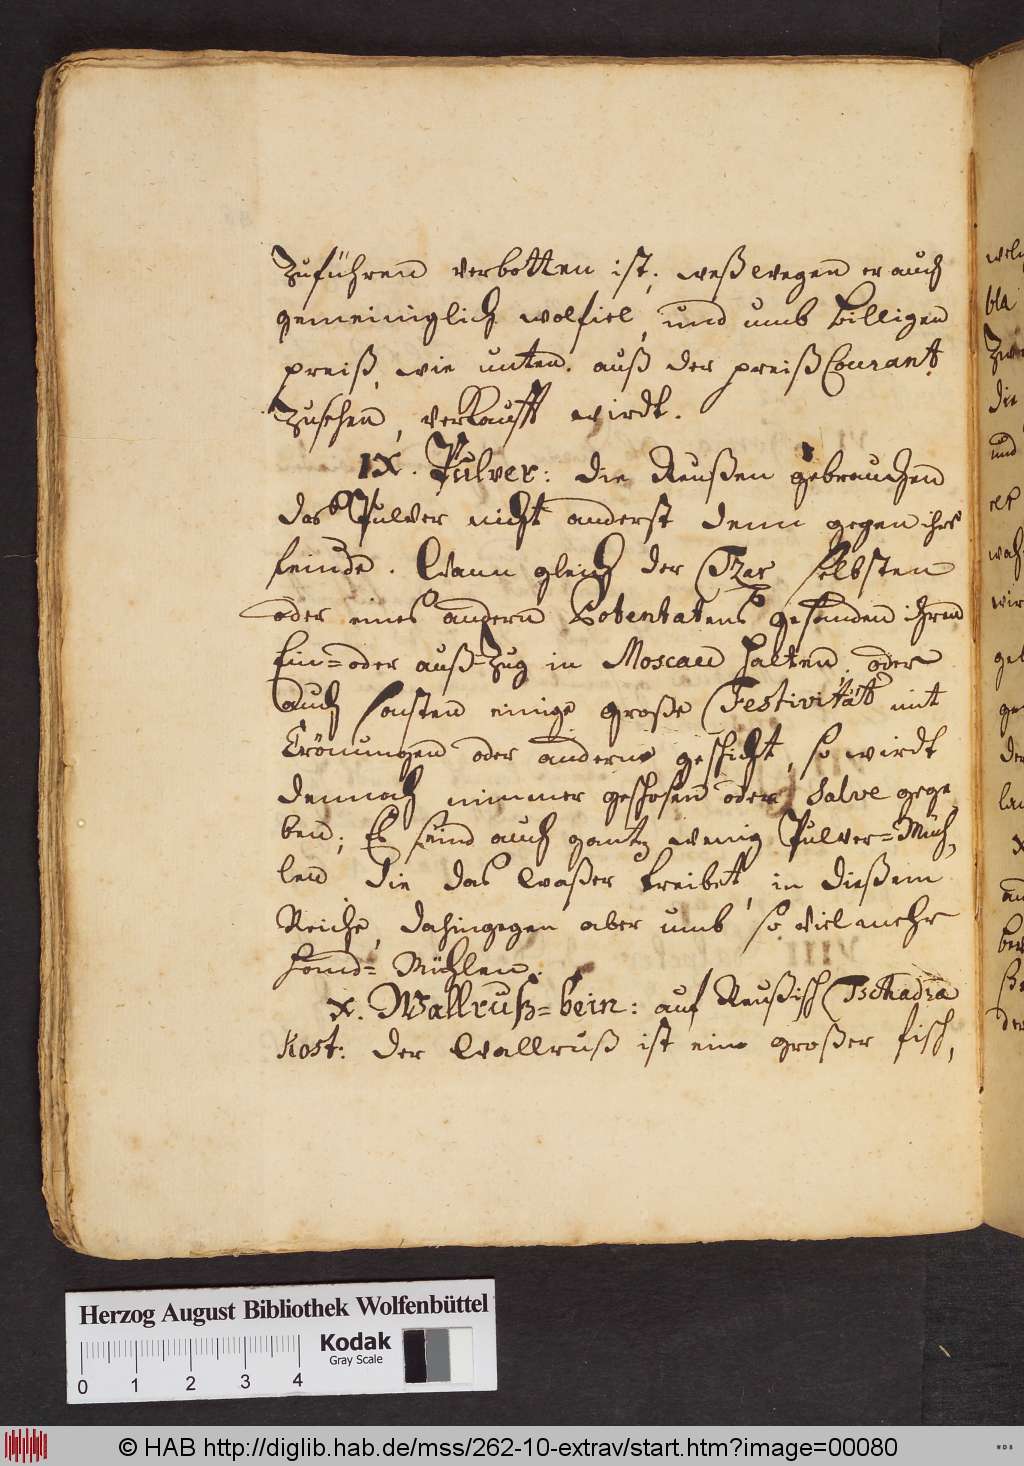 zuführen verbotten ist, weßwegen er auch
gemeiniglich wolfiel, und umb billigen
preiß, wie unten auß der preiß Courant
zusehen, verkaufft wirdt.
IX. Pulver: die Reußen gebrauchen
das Pulver nicht anderst denn gegen ihre
feinde. Wann gleich der Tzar selbsten
oder eines andern Potentatens gesanden ihren
Ein= oder auß-Zug in Moscau halten oder
auch sonsten einige große Festivität mit
Crönungen oder anderm geschicht, so wirdt
dennoch nimmer geschosen oder Salve gege
ben; Es seind auch gantz wenig Pulver=Müh,
len die das Waßer treibet, in dießem
Reiche, dahingegen aber umb so viel mehr
Hand= Mühlen.
X. Wallruß=bein: auf Reußisch Tschadra
Kost: der Wallruß ist ein großer fisch,
und
Herzog August Bibliothek Wolfenbüttel
Kodak
Gray Scale
0 1 2 3 4
© HAB http://diglib.hab.de/mss/262-10-extrav/start.htm?image=00080